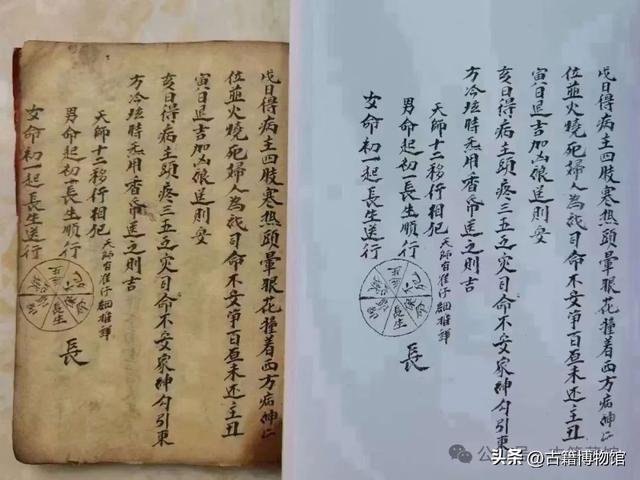 戌日得病主四肢寒热頭暈眼花撞着西方病神
位並火燒死婦人為司命不安百未还主丑
寅日退吉加凶送則安
亥日得病主頭疼三五之災司命不安家神勾引東
方冷坛時用香帋送之則吉
天師十二移行相犯
天師百准仔細推詳
男命起初一長生順行
女命初一起長生逆行
長生
長
戌日得病主四肢寒热頭暈眼花撞着西方病神
位並火燒死婦人為司命不安百未还主丑
寅日退吉加凶送則安
亥日得病主頭疼三五之災司命不安家神勾引東
方冷坛時用香帋送之則吉
天師十二移行相犯
天師百准仔細推詳
男命起初一長生順行
女命初一起長生逆行
長生
長
头条 @古籍博物馆